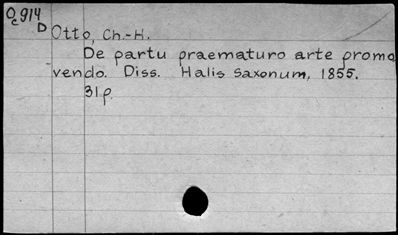 Oc914
D Otto, Ch.-H.
De partu praematuro arte promo
vendo. Diss. Halis Saxonum, 1855.
31p